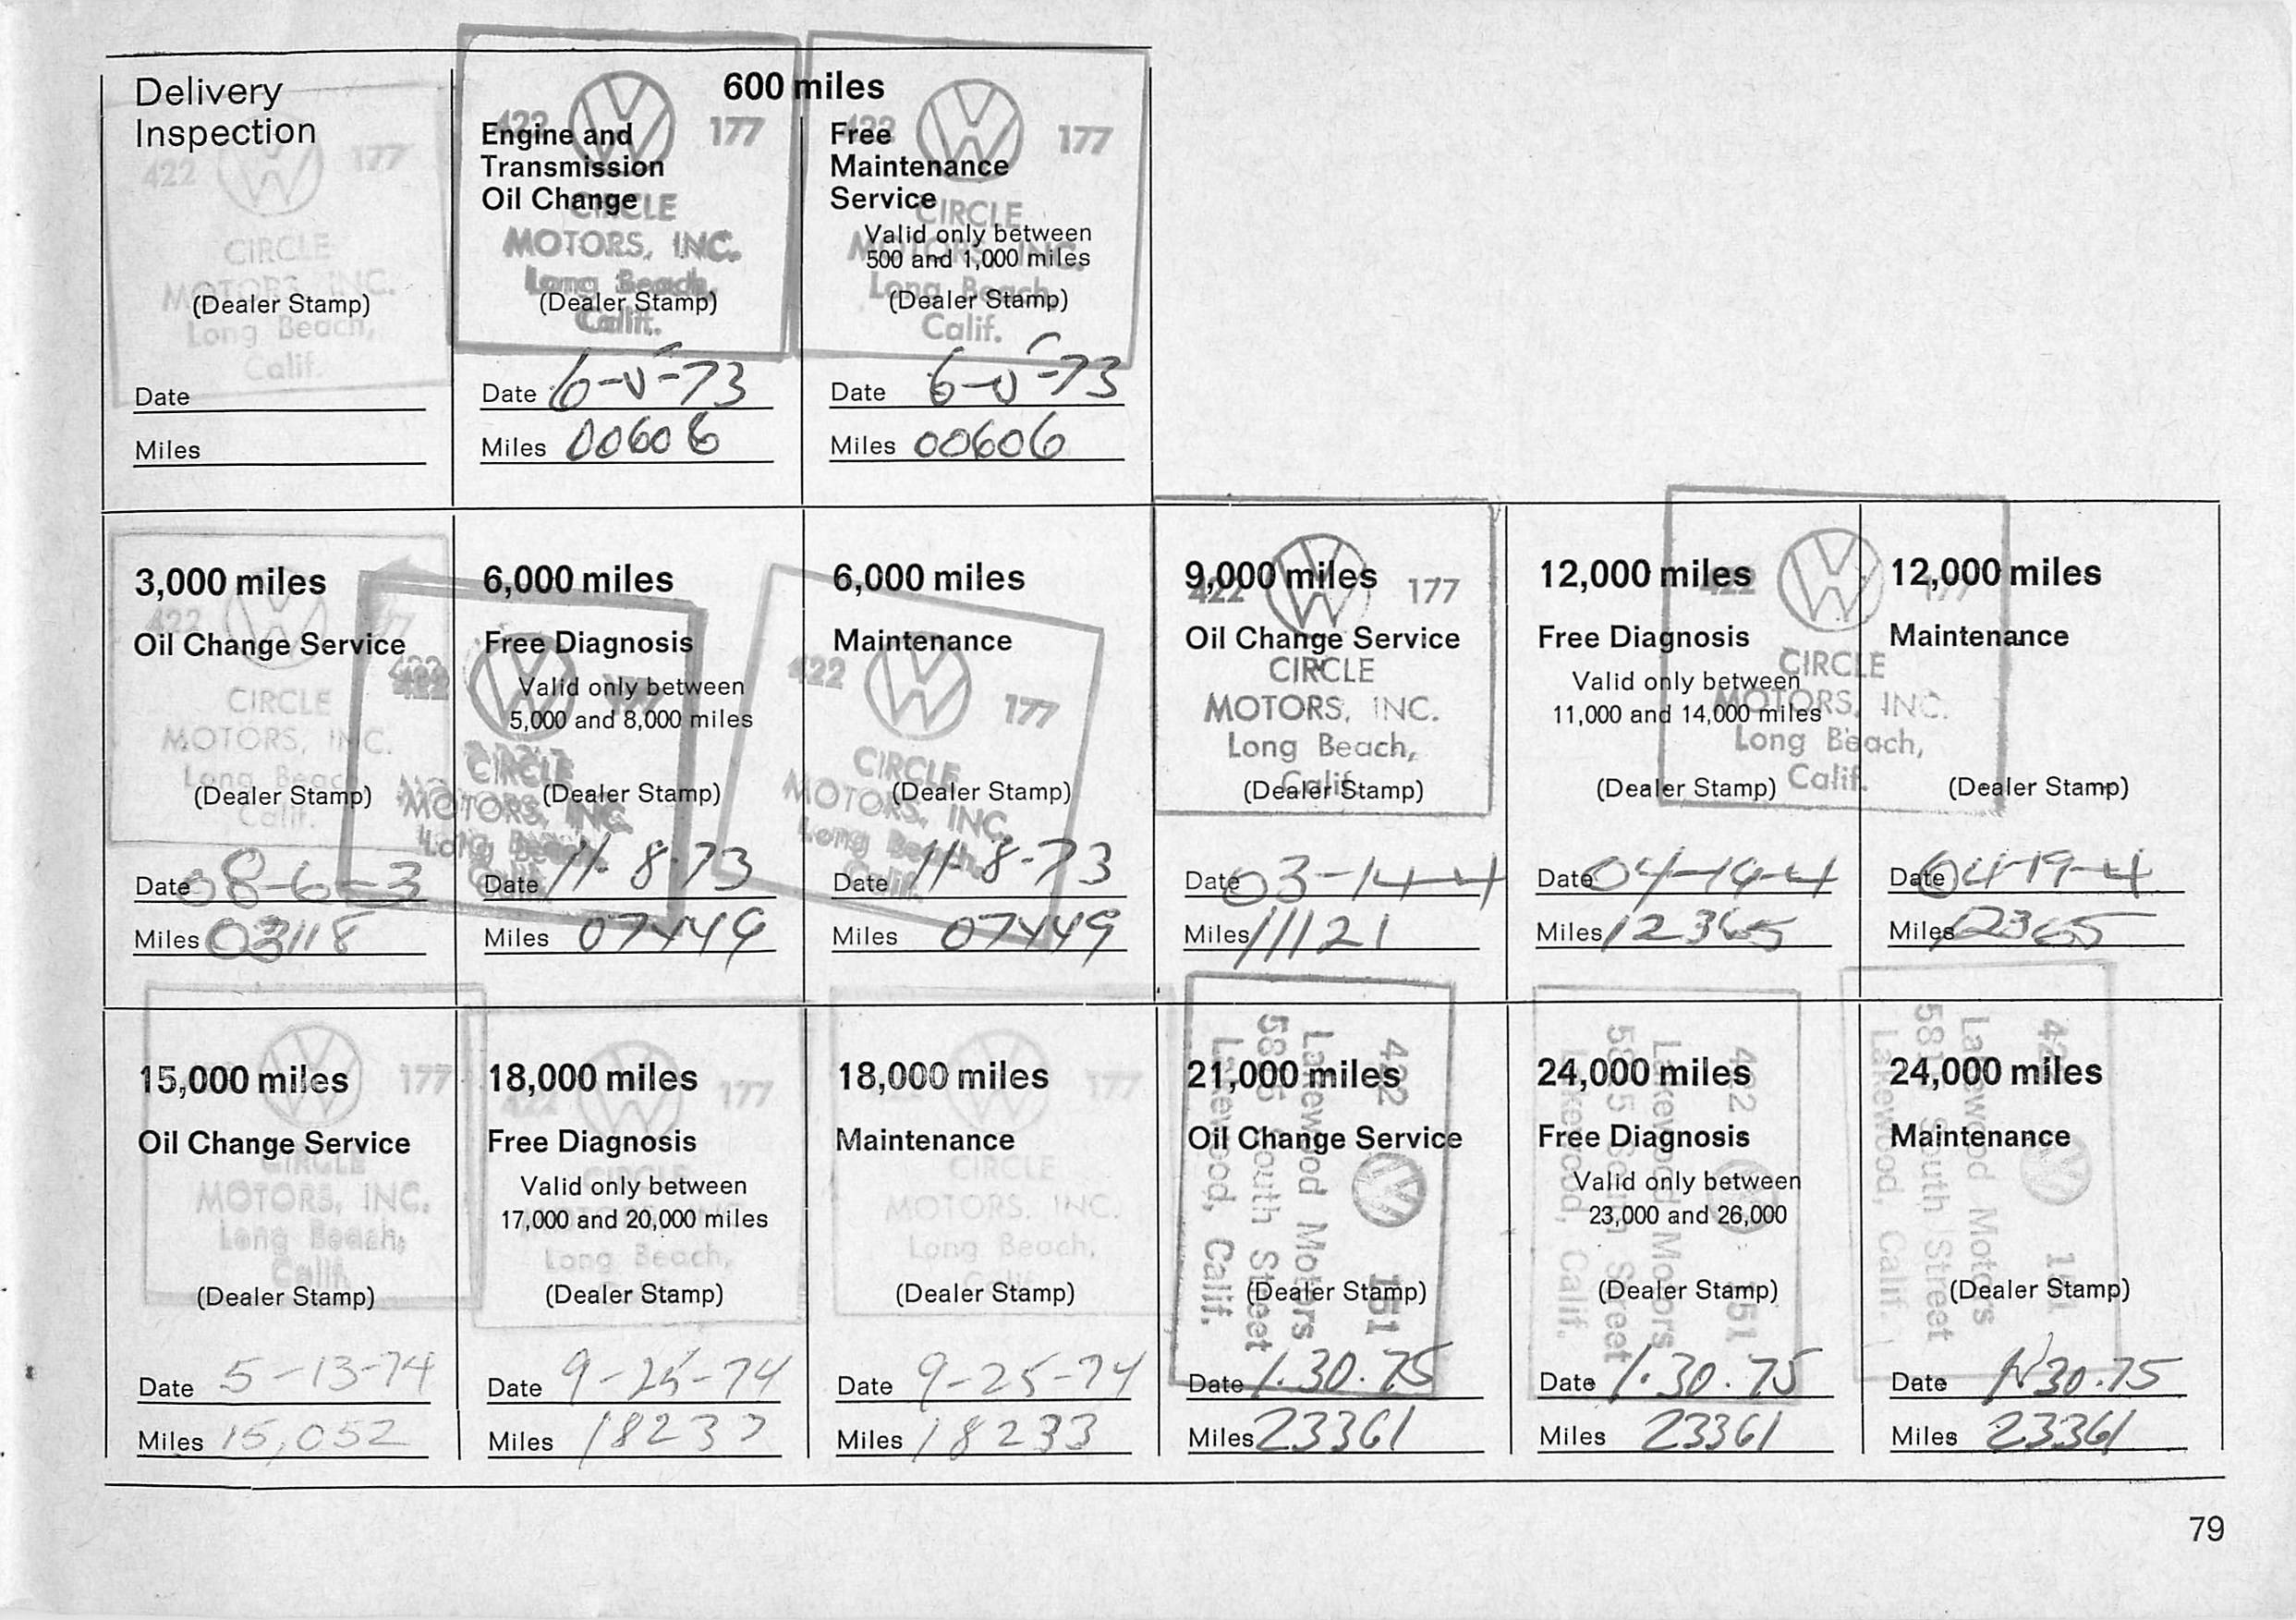 Delivery
Inspection
422 177
CIRCLE
MOTORS, INC.
(Dealer Stamp)
Long Beach,
Calif.
Date
Miles
600 miles
Engine and
Transmission
Oil Change
422 177
CIRCLE
MOTORS, INC.
Long Beach,
(Dealer Stamp)
Calif.
Date 6-5-73
Miles 00606
Free
Maintenance
Service
422 177
CIRCLE
Valid only between
MOTORS, INC.
500 and 1,000 miles
Long Beach,
(Dealer Stamp)
Calif.
Date 6-5-73
Miles 00606
3,000 miles
422 177
Oil Change Service
CIRCLE
MOTORS, INC.
Long Beach,
(Dealer Stamp)
Calif.
Date 08-6-3
Miles 03118
6,000 miles
Free Diagnosis
422 177
Valid only between
5,000 and 8,000 miles
CIRCLE
(Dealer Stamp)
MOTORS, INC.
Long Beach,
Calif.
Date 11-8-73
Miles 07449
6,000 miles
Maintenance
422 177
CIRCLE
(Dealer Stamp)
MOTORS, INC.
Long Beach,
Calif.
Date 11-8-73
Miles 07449
9,000 miles
422 177
Oil Change Service
CIRCLE
MOTORS, INC.
Long Beach,
Calif.
(Dealer Stamp)
Date 03-14-4
Miles 11121
12,000 miles
422 177
Free Diagnosis
CIRCLE
Valid only between
MOTORS, INC.
11,000 and 14,000 miles
Long Beach,
Calif.
(Dealer Stamp)
Date 04-19-4
Miles 12365
12,000 miles
Maintenance
(Dealer Stamp)
Date 04-19-4
Miles 12365
15,000 miles
177
Oil Change Service
CIRCLE
MOTORS, INC.
Long Beach,
Calif.
(Dealer Stamp)
Date 5-13-74
Miles 15,052
18,000 miles
422 177
Free Diagnosis
CIRCLE
Valid only between
17,000 and 20,000 miles
Long Beach,
(Dealer Stamp)
Date 9-25-74
Miles 18233
18,000 miles
177
Maintenance
CIRCLE
MOTORS, INC.
Long Beach,
Calif.
(Dealer Stamp)
Date 9-25-74
Miles 18233
21,000 miles
Oil Change Service
422 151
Lakewood Motors
5815 South Street
Lakewood, Calif.
(Dealer Stamp)
Date 1.30.75
Miles 23361
24,000 miles
Free Diagnosis
Valid only between
23,000 and 26,000
422 151
Lakewood Motors
5815 South Street
Lakewood, Calif.
(Dealer Stamp)
Date 1.30.75
Miles 23361
24,000 miles
Maintenance
422 151
Lakewood Motors
5815 South Street
Lakewood, Calif.
(Dealer Stamp)
Date 1.30.75
Miles 23361
79